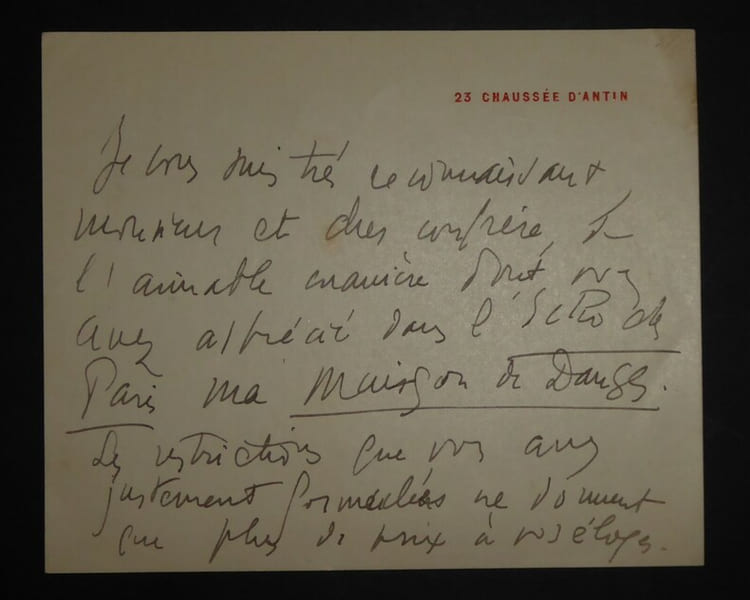 23 CHAUSSÉE D'ANTIN
Je vous suis très reconnaissant,
monsieur et cher confrère, de
l'aimable manière dont vous
avez apprécié dans l'Echo de
Paris ma Maison de Danses.
Les restrictions que vous avez
justement formulées ne donnent
que plus de prix à vos éloges.